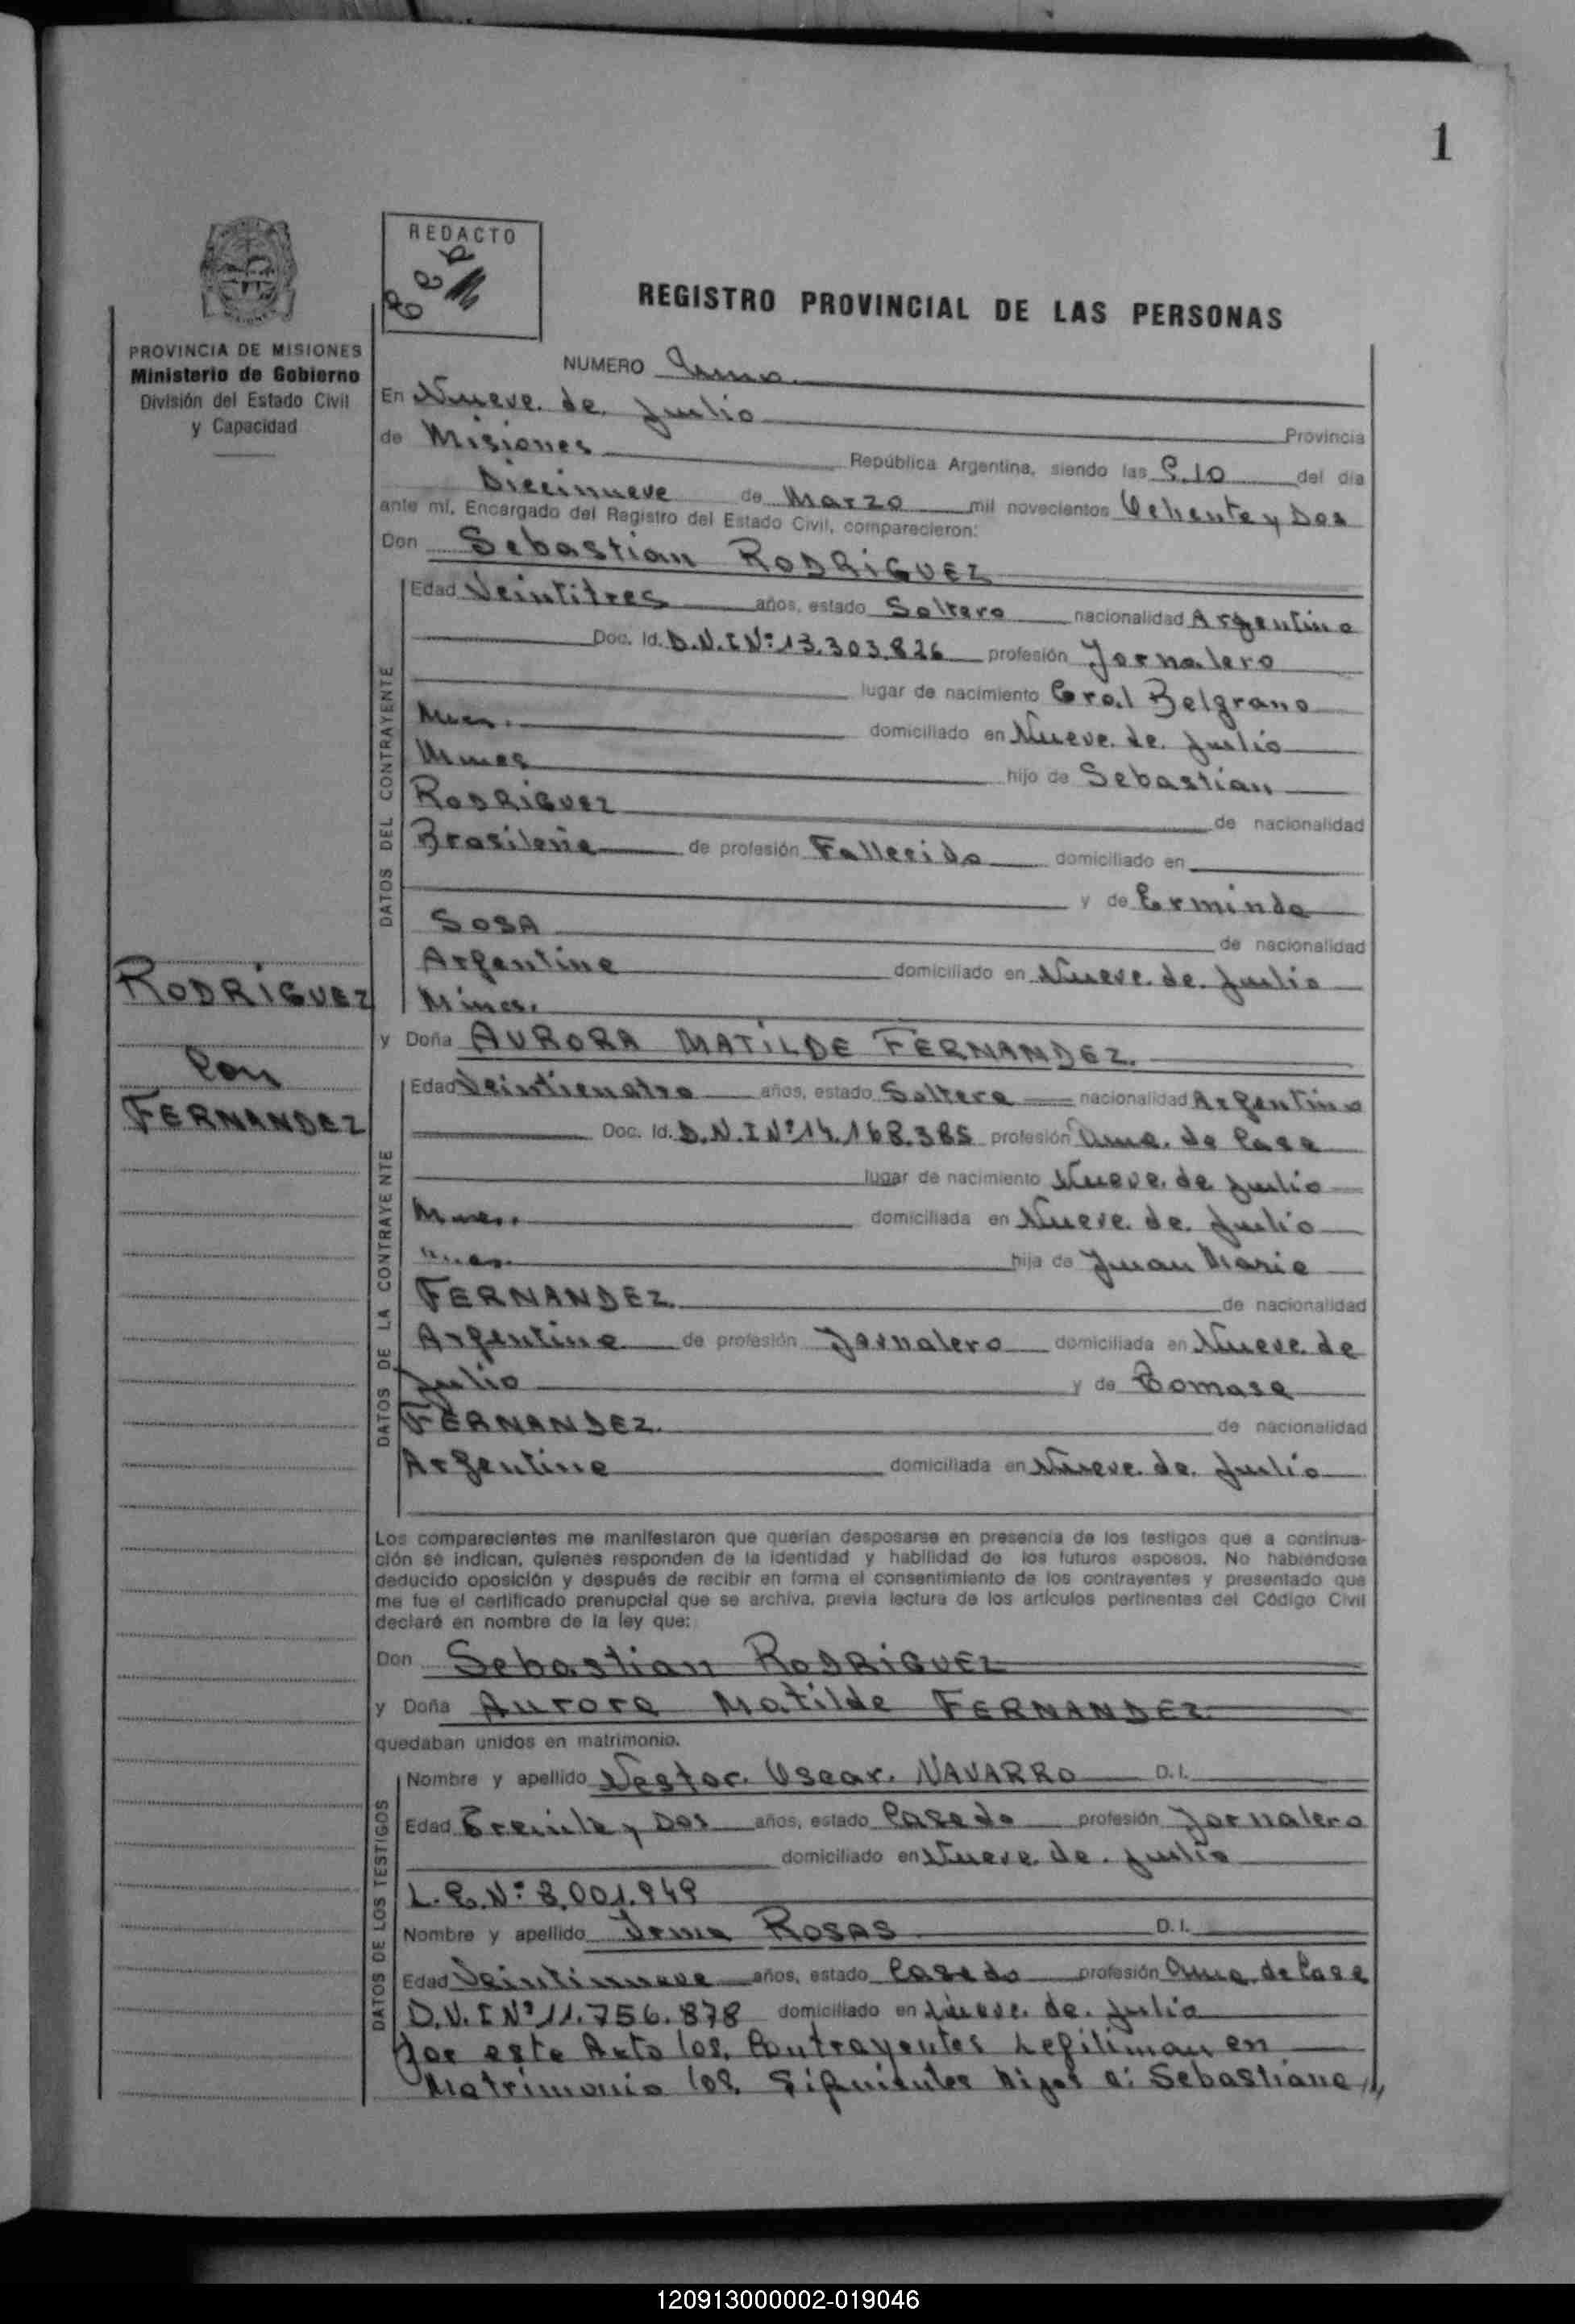 1
REDACTO
REGISTRO PROVINCIAL DE LAS PERSONAS
PROVINCIA DE MISIONES
Ministerio de Gobierno
División del Estado Civil
y Capacidad
NUMERO Uno
En Nueve de Julio Provincia
de Misiones República Argentina, siendo las 9.10 del día
Diecinueve de Marzo mil novecientos Ochenta y Dos
ante mí, Encargado del Registro del Estado Civil, comparecieron:
Don Sebastian RODRIGUEZ
DATOS DEL CONTRAYENTE
Edad Veintitres años, estado Soltero nacionalidad Argentina
Doc. Id. D.N.I Nº 13.303.826 profesión Jornalero
lugar de nacimiento Gral Belgrano
domiciliado en Nueve de Julio
hijo de Sebastian
RODRIGUEZ de nacionalidad
Brasileña de profesión Fallecido domiciliado en
y de Erminda
SOSA de nacionalidad
Argentina domiciliado en Nueve de Julio
Mnes.
RODRIGUEZ
Con
FERNANDEZ
y Doña AURORA MATILDE FERNANDEZ.
DATOS DE LA CONTRAYENTE
Edad Veinticuatro años, estado Soltera nacionalidad Argentina
Doc. Id. D.N.I Nº 14.168.385 profesión Ama de Casa
lugar de nacimiento Nueve de Julio
Mnes. domiciliada en Nueve de Julio
Mnes. hija de Juan Maria
FERNANDEZ. de nacionalidad
Argentina de profesión Jornalero domiciliada en Nueve de
Julio y de Tomasa
FERNANDEZ. de nacionalidad
Argentina domiciliada en Nueve de Julio
Los comparecientes me manifestaron que querían desposarse en presencia de los testigos que a continua-
ción se indican, quienes responden de la identidad y habilidad de los futuros esposos. No habiéndose
deducido oposición y después de recibir en forma el consentimiento de los contrayentes y presentado que
me fue el certificado prenupcial que se archiva, previa lectura de los artículos pertinentes del Código Civil
declaré en nombre de la ley que:
Don Sebastian RODRIGUEZ
y Doña Aurora Matilde FERNANDEZ
quedaban unidos en matrimonio.
DATOS DE LOS TESTIGOS
Nombre y apellido Nestor Oscar NAVARRO D.I.
Edad Treinta y Dos años, estado Casado profesión Jornalero
domiciliado en Nueve de Julio
L.E. Nº 8.001.949
Nombre y apellido Irma ROSAS D.I.
Edad Veintinueve años, estado Casado profesión Ama de Casa
D.N.I Nº 11.756.878 domiciliado en Nueve de Julio
Por este Acto los Contrayentes Legitiman en
Matrimonio los Siguientes Hijos a: Sebastiana,,
120913000002-019046